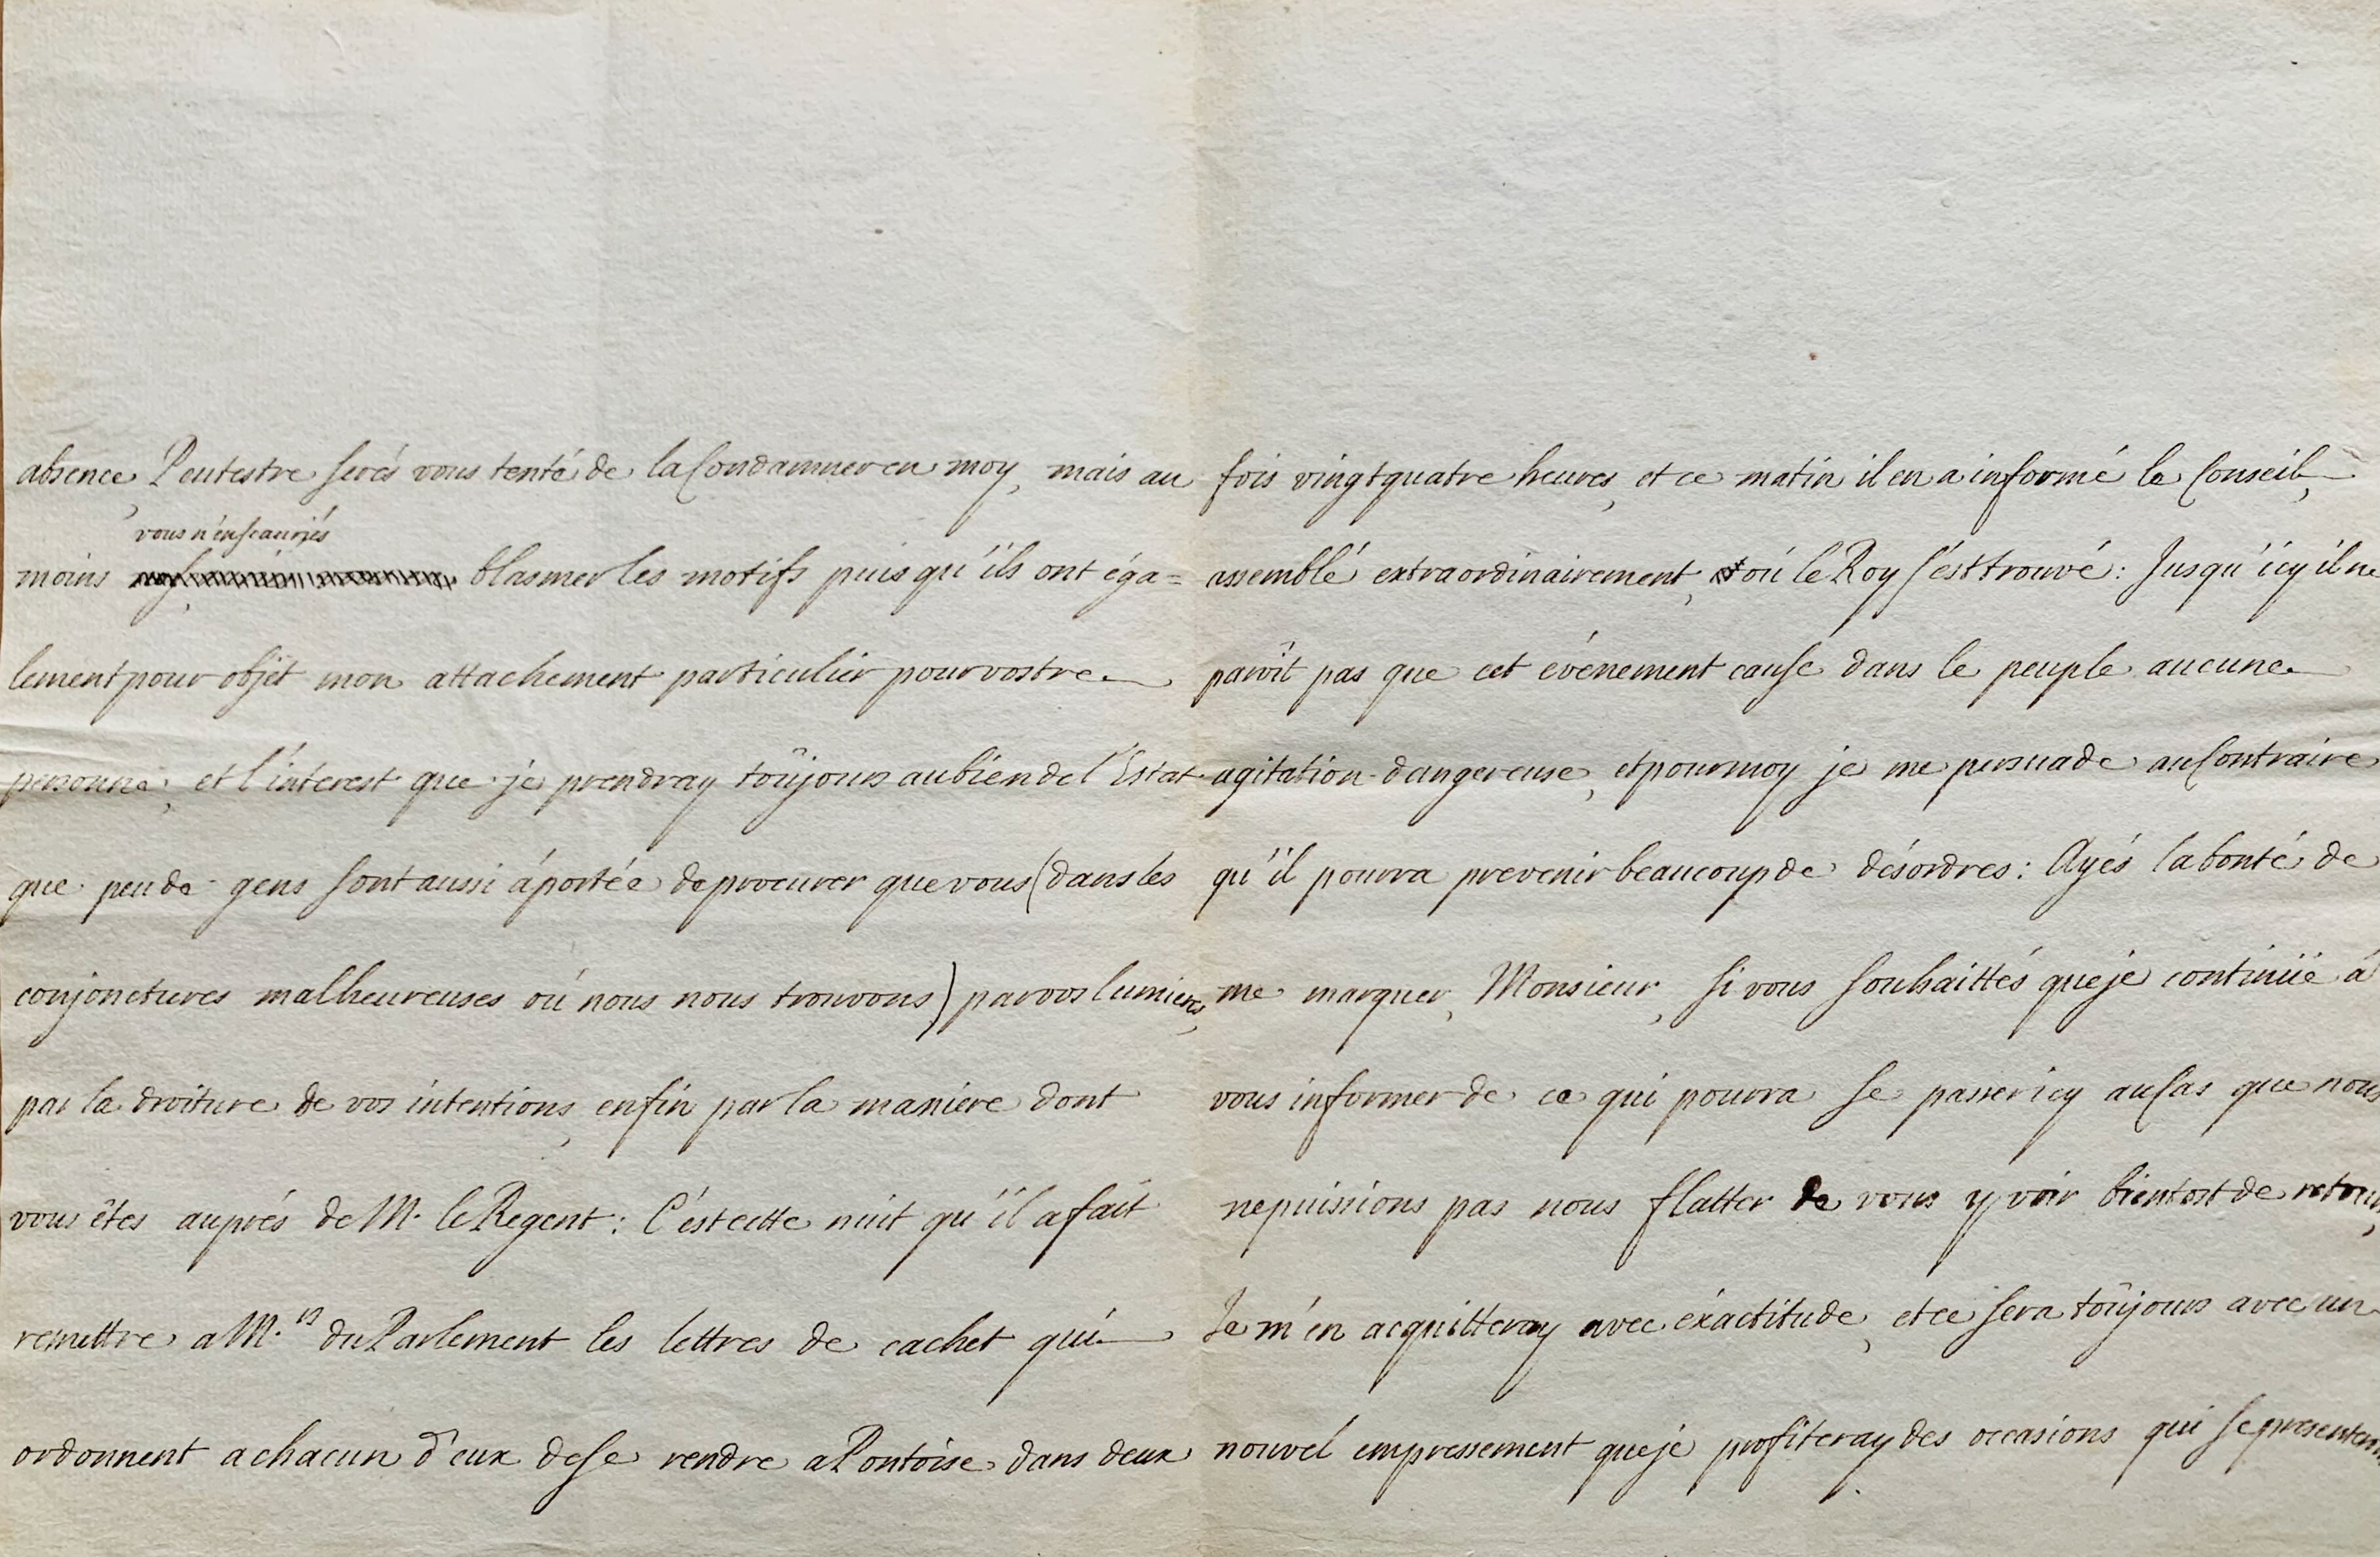 absence, Peutestre serés vous tenté de la Condamner en moy, mais au
vous n'en scauriés
moins blasmer les motifs puis qu'ils ont éga=
lement pour objet mon attachement particulier pour vostre
personne, et l'interest que je prendray toûjours au bien de l'Estat
que peu de gens sont aussi á portée de procurer que vous (dans les
conjonctures malheureuses oú nous nous trouvons) par vos lumieres,
par la droiture de vos intentions, enfin par la maniere dont
vous êtes auprés de M. le Regent: C'est cette nuit qu'il a fait
remettre a M.rs du Parlement les lettres de cachet qui
ordonnent a chacun d'eux de se rendre a Pontoise dans deux
fois vingt quatre heures, et ce matin il en a informé le Conseil,
assemblé extraordinairement, oú le Roy s'est trouvé: Jusqu'icy il ne
paroît pas que cet événement cause dans le peuple aucune
agitation dangereuse, et pour moy je me persuade au Contraire
qu'il pourra prevenir beaucoup de désordres: Ayés la bonté de
me marquer, Monsieur, si vous souhaittés que je continüe á
vous informer de ce qui pourra se passer icy au Cas que nous
ne puissions pas nous flatter de vous y voir bientost de retour,
Je m'en acquitteray avec éxactitude, et ce sera toûjours avec un
nouvel empressement que je profiteray des occasions qui se presenteront